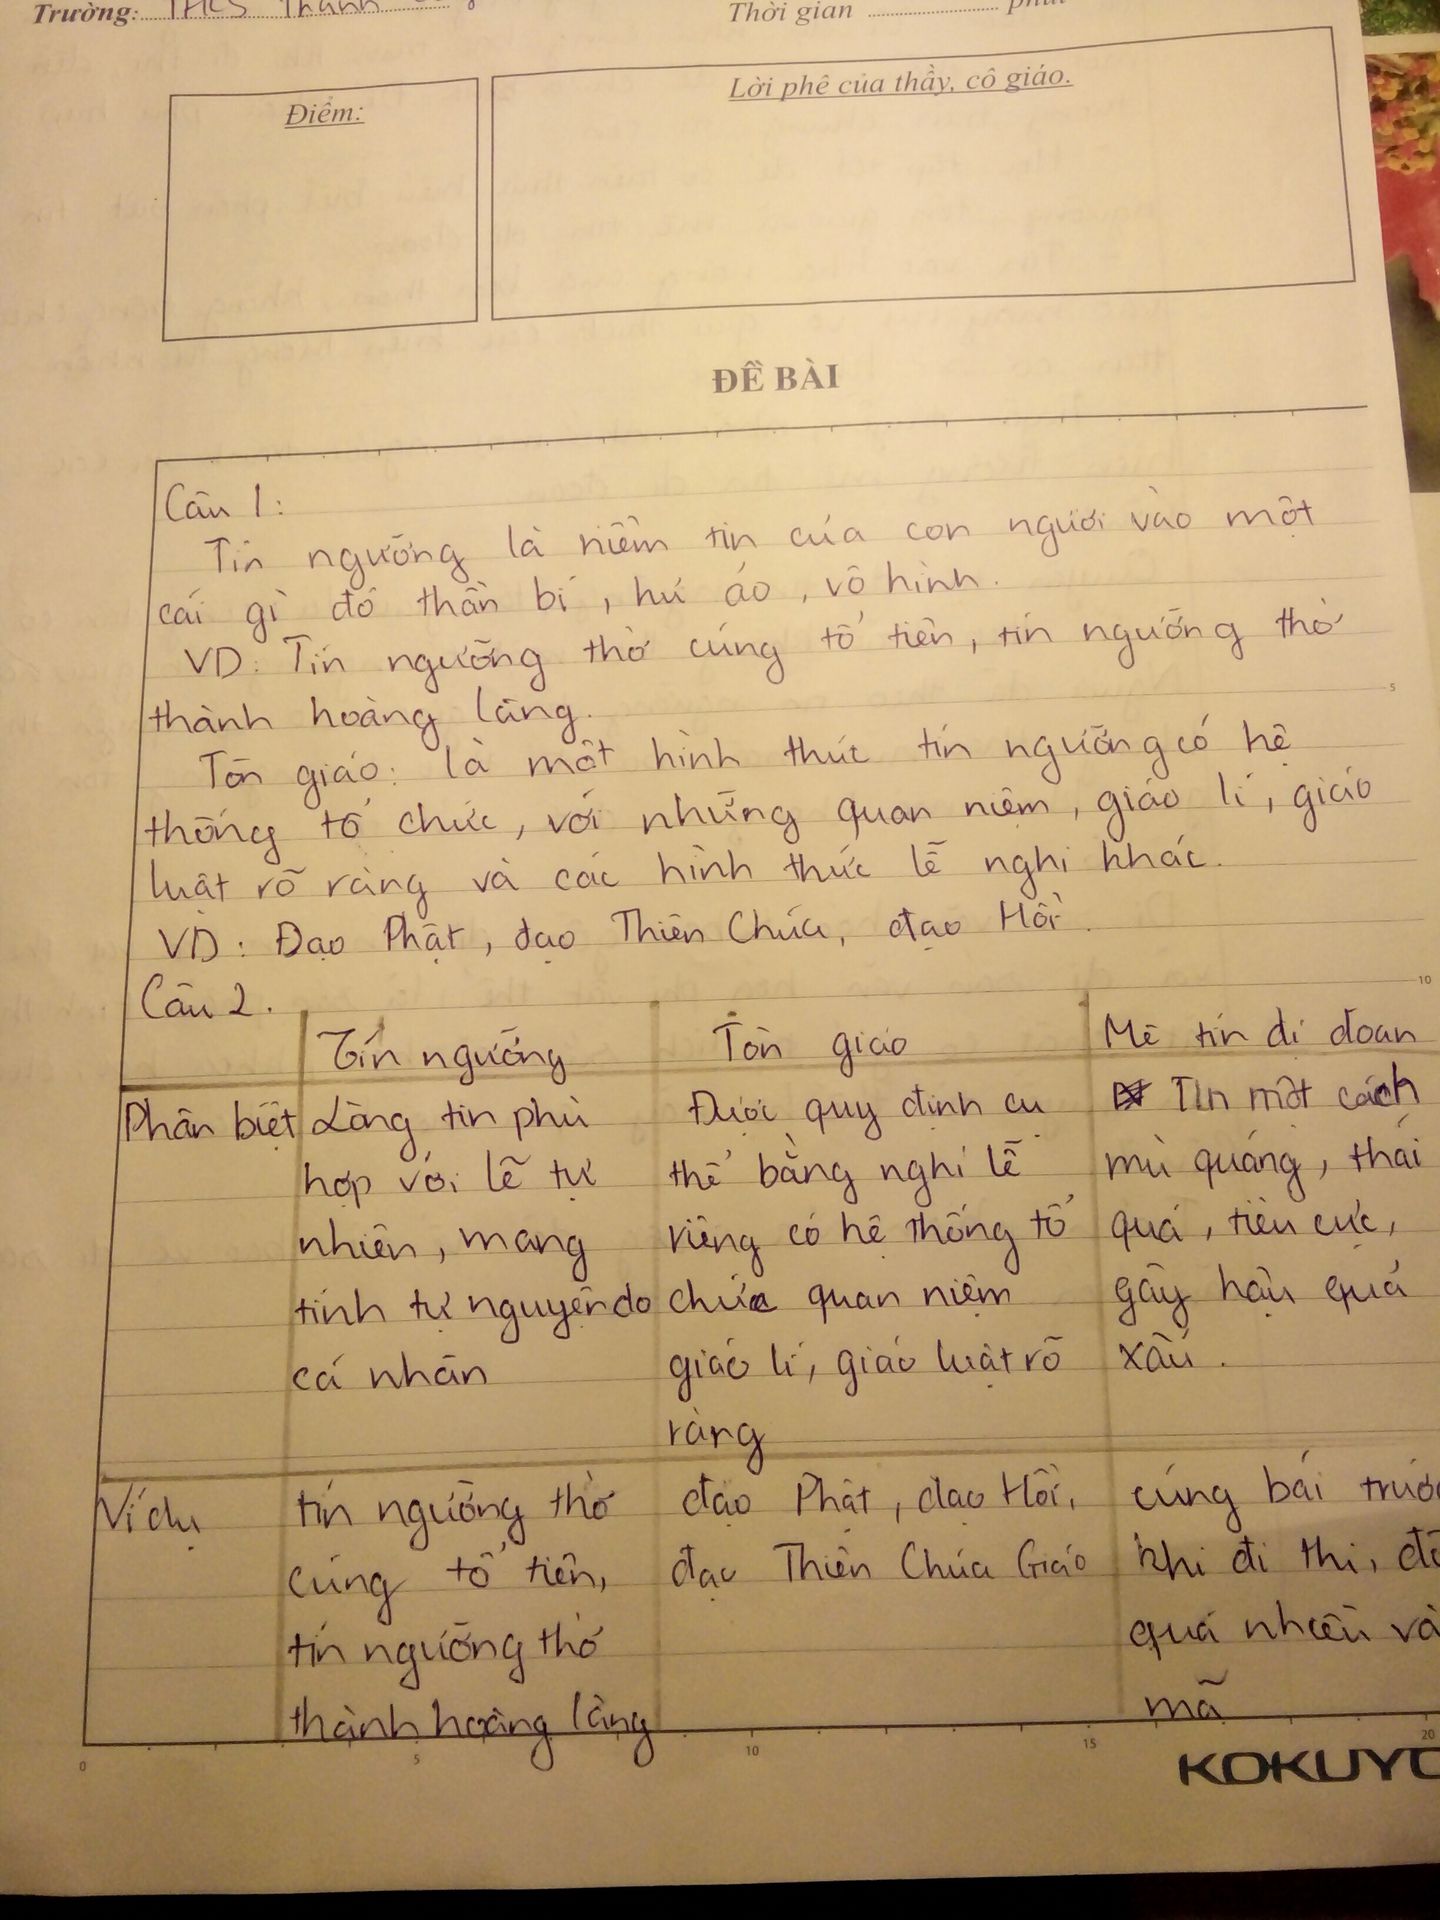 Trường: THCS Thành
Thời gian
Điểm:
Lời phê của thầy, cô giáo.
ĐỀ BÀI
Câu 1:
Tín ngưỡng là niềm tin của con người vào một
cái gì đó thần bí, hư ảo, vô hình.
VD: Tín ngưỡng thờ cúng tổ tiên, tín ngưỡng thờ
thành hoàng làng.
5
Tôn giáo: là một hình thức tín ngưỡng có hệ
thống tổ chức, với những quan niệm, giáo lí, giáo
luật rõ ràng và các hình thức lễ nghi khác.
VD: Đạo Phật, đạo Thiên Chúa, đạo Hồi.
10
Câu 2.
Tín ngưỡng
Tôn giáo
Mê tín dị đoan
Phân biệt
Lòng tin phù
hợp với lẽ tự
nhiên, mang
tính tự nguyện do
cá nhân
Được quy định cụ
thể bằng nghi lễ
riêng có hệ thống tổ
chức quan niệm
giáo lí, giáo luật rõ
ràng
Tin một cách
mù quáng, thái
quá, tiêu cực,
gây hậu quả
xấu.
Ví dụ
tín ngưỡng thờ
cúng tổ tiên,
tín ngưỡng thờ
thành hoàng làng
đạo Phật, đạo Hồi,
đạo Thiên Chúa Giáo
cúng bái
khi đi thi,
quá nhiều
mã
0 5 10 15 20
KOKUYO